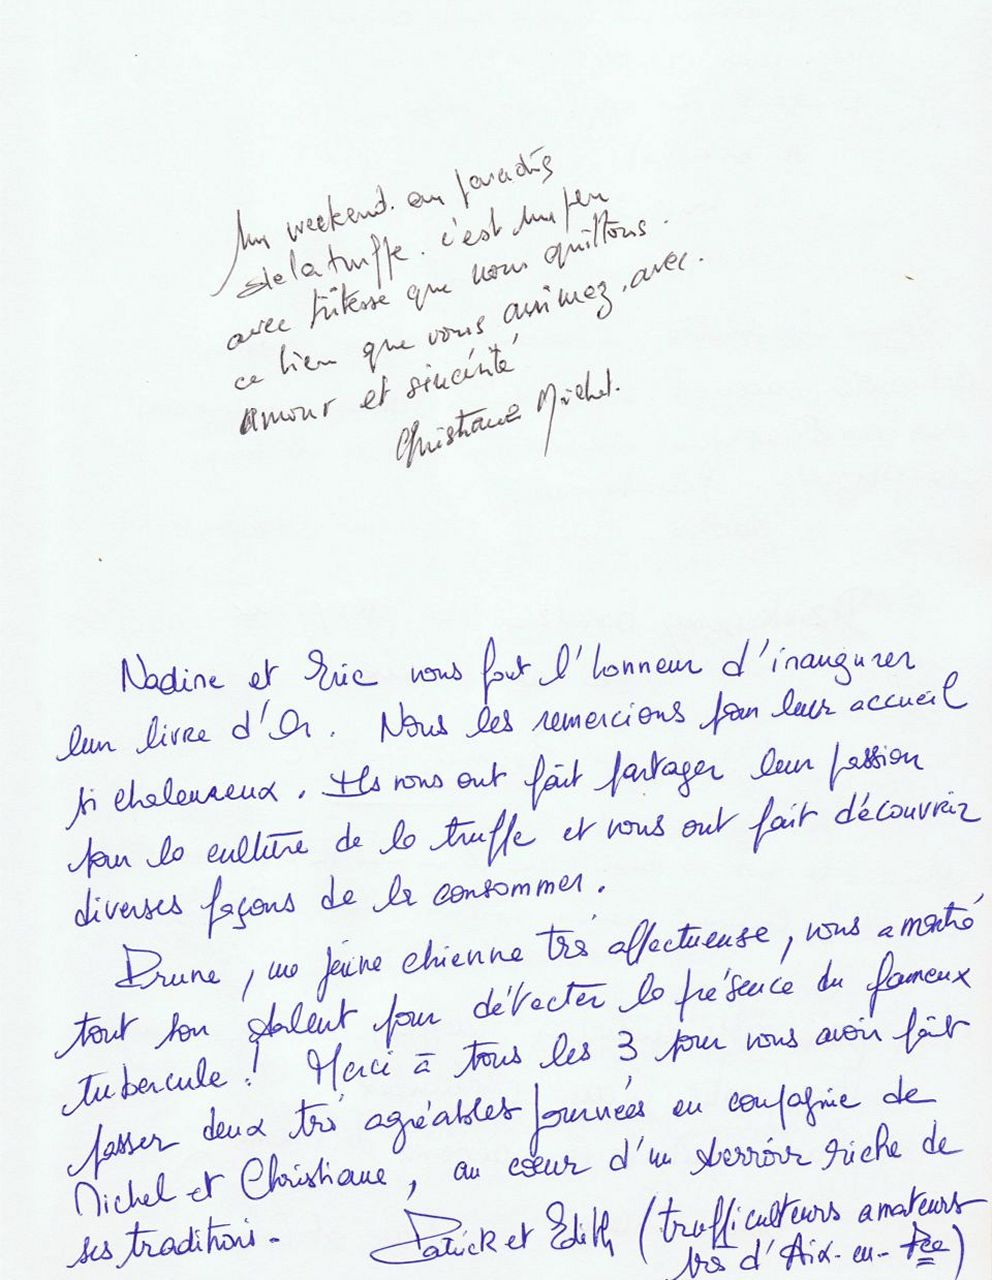 Un weekend. au paradis
de la truffe. c'est un peu
avec tristesse que nous quittons.
ce lieu que vous animez, avec.
amour et sincérité
Christiane Michel.
Nadine et Eric nous font l'honneur d'inaugurer
leur livre d'Or. Nous les remercions pour leur accueil
si chaleureux. Ils nous ont fait partager leur passion
pour la culture de la truffe et nous ont fait découvrir
diverses façons de la consommer.
Prune, une jeune chienne très affectueuse, nous a montré
tout son talent pour détecter la présence du fameux
tubercule! Merci à tous les 3 pour nous avoir fait
passer deux très agréables journées en compagnie de
Michel et Christiane, au coeur d'un terroir riche de
ses traditions.
Patrick et Edith (trufficulteurs amateurs
d'Aix-en-Pce)